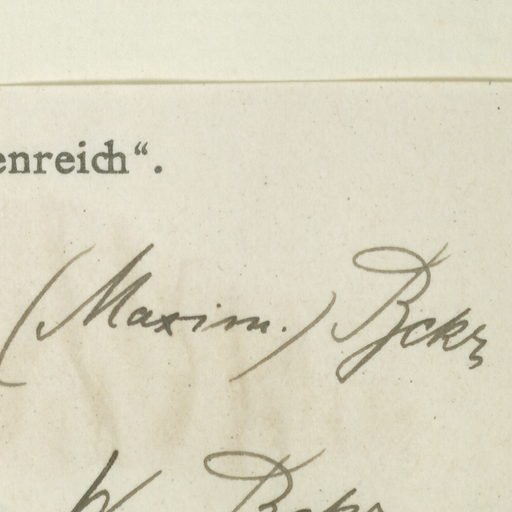 enreich“.
(Maxim.) Bckr